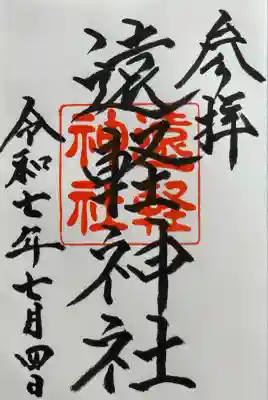 参拝
遠軽神社
遠軽神社
令和七年七月四日